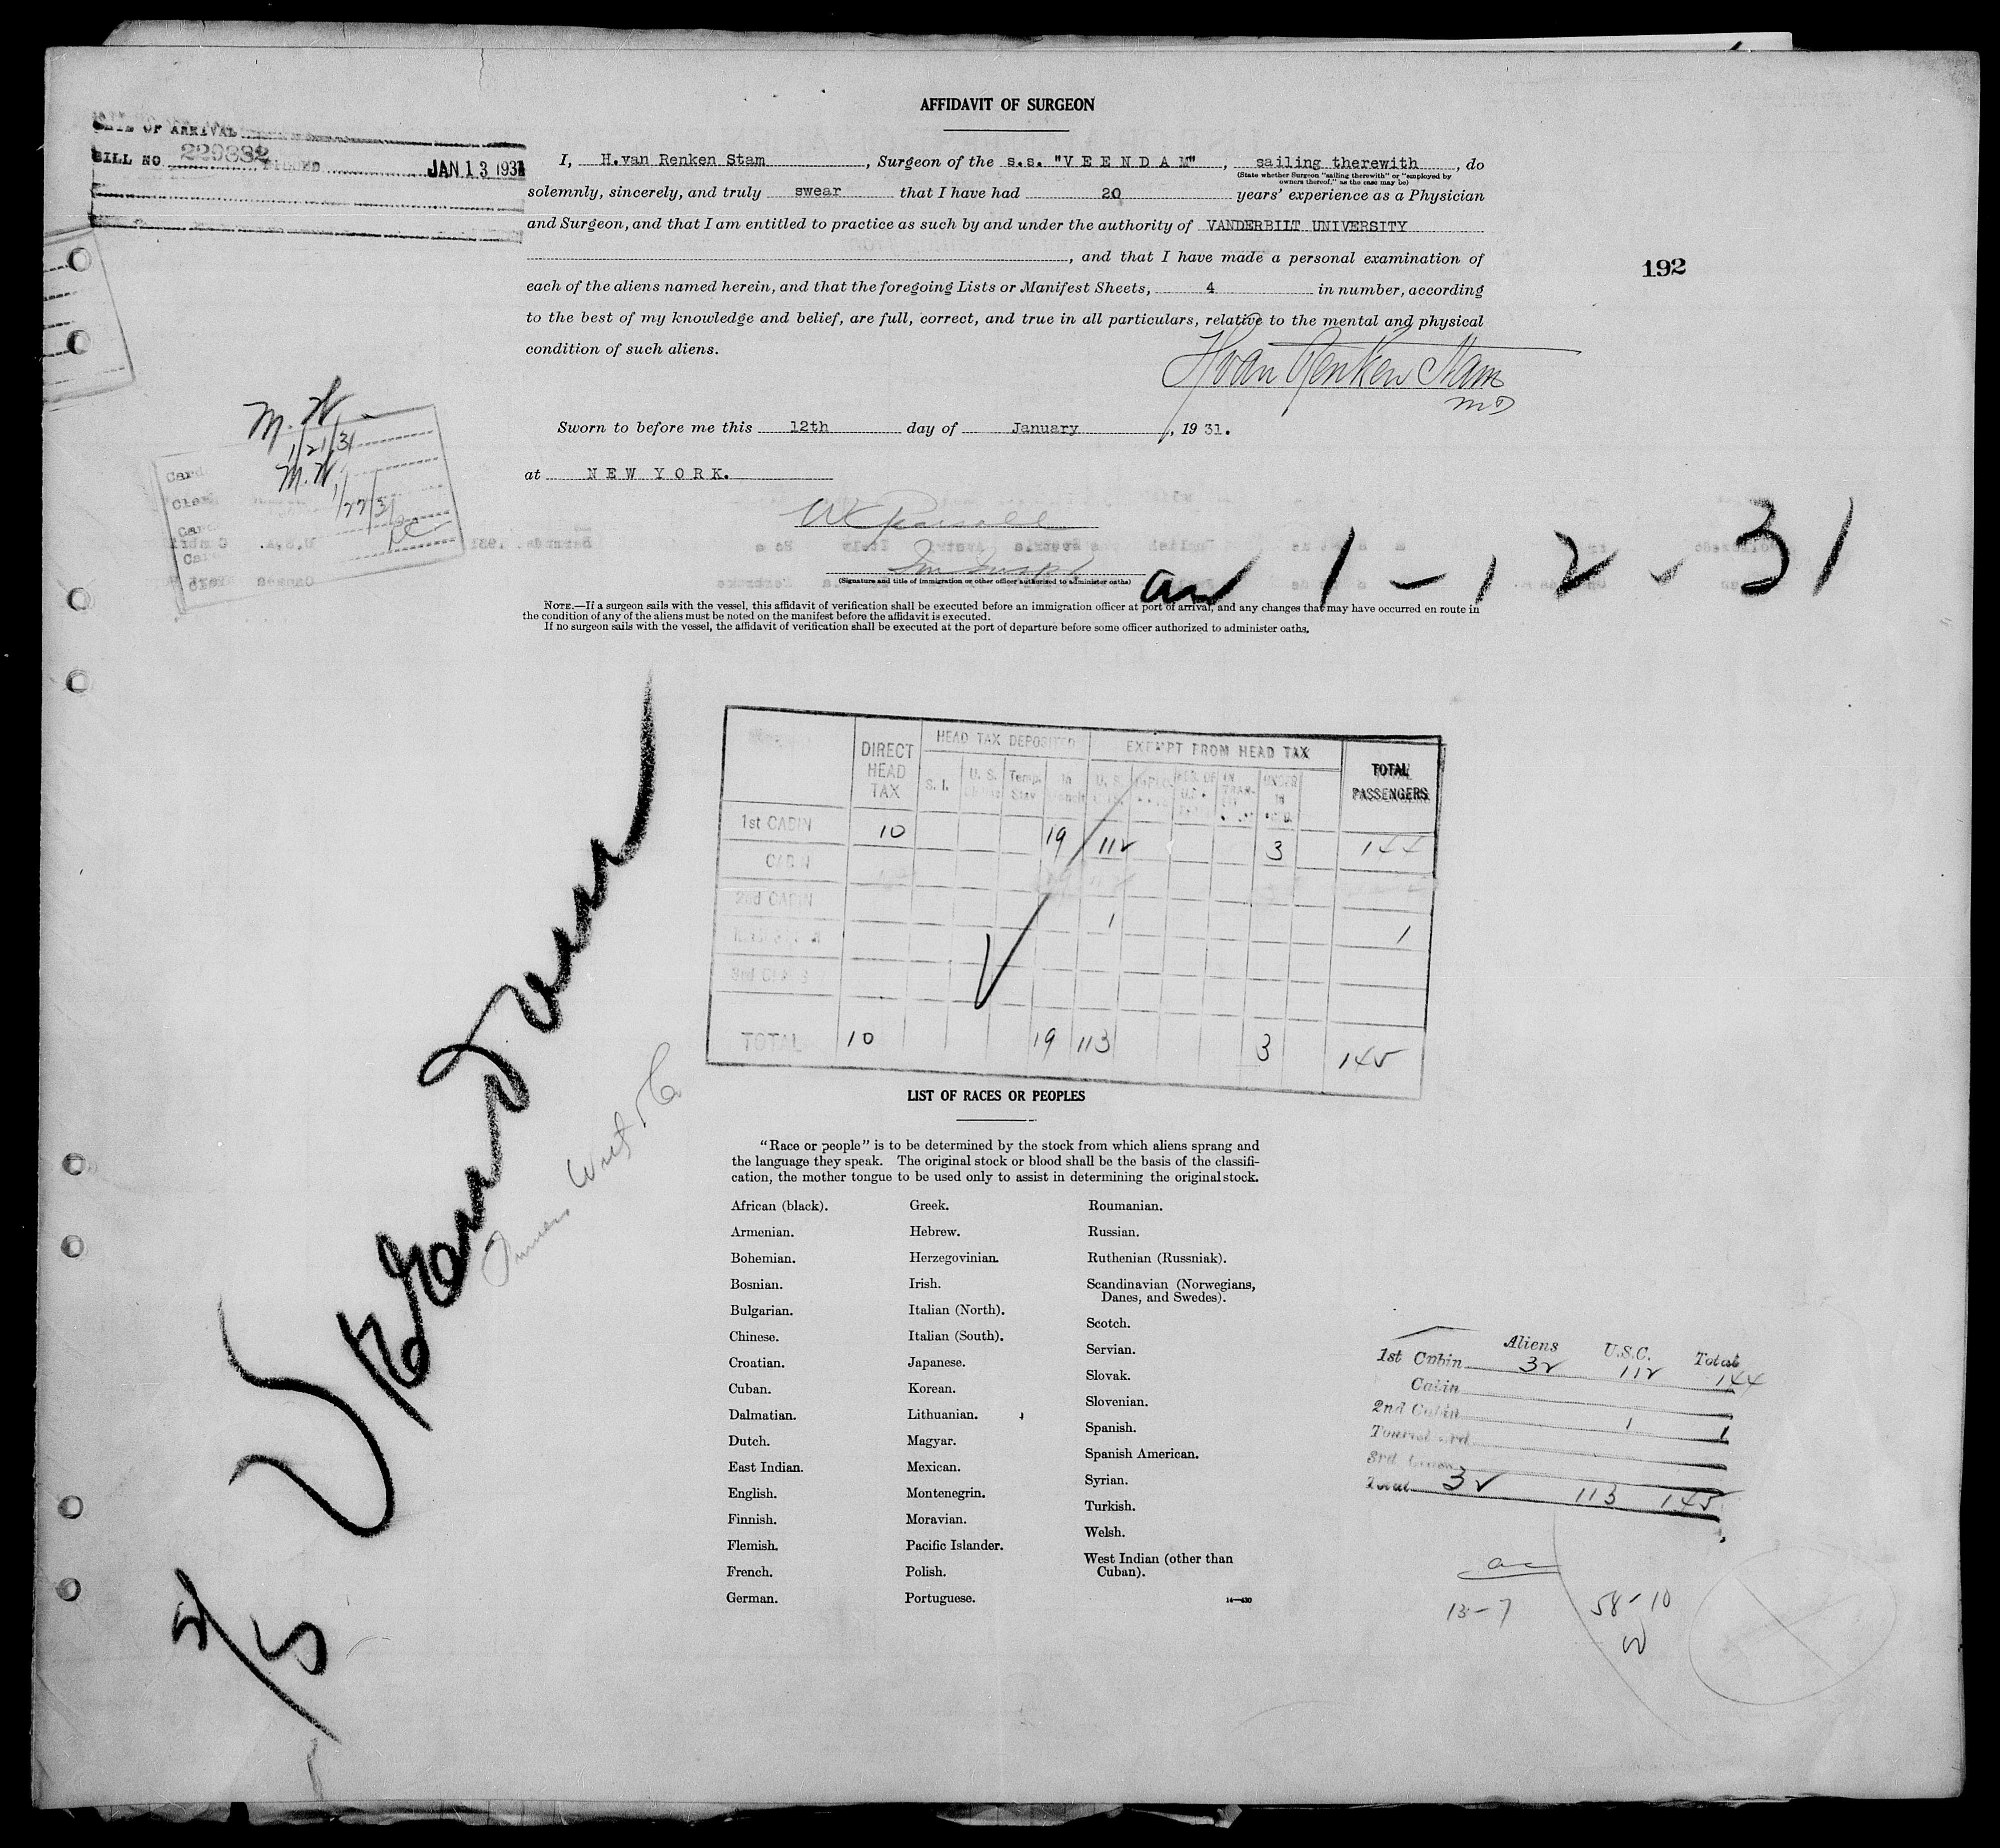 AFFIDAVIT OF SURGEON
DATE OF ARRIVAL
BILL NO. 229882 JAN 13 1931
I, H.van Renken Stam, Surgeon of the s.s. "V E E N D A M", sailing therewith, do
(State whether Surgeon "sailing therewith" or "employed by
owners thereof," as the case may be)
solemnly, sincerely, and truly swear that I have had 20 years' experience as a Physician
and Surgeon, and that I am entitled to practice as such by and under the authority of VANDERBILT UNIVERSITY
, and that I have made a personal examination of
192
each of the aliens named herein, and that the foregoing Lists or Manifest Sheets, 4 in number, according
to the best of my knowledge and belief, are full, correct, and true in all particulars, relative to the mental and physical
condition of such aliens.
H van Renken Stam
MD
Sworn to before me this 12th day of January, 1931.
at N E W Y O R K.
M. W.
1/21/31
M. W.
1/27/31
Card
Clerk
Card
Clerk
(Signature and title of immigration or other officer authorized to administer oaths)
1-12-31
NOTE.—If a surgeon sails with the vessel, this affidavit of verification shall be executed before an immigration officer at port of arrival, and any changes that may have occurred en route in
the condition of any of the aliens must be noted on the manifest before the affidavit is executed.
If no surgeon sails with the vessel, the affidavit of verification shall be executed at the port of departure before some officer authorized to administer oaths.
DIRECT HEAD TAX HEAD TAX DEPOSITED EXEMPT FROM HEAD TAX TOTAL PASSENGERS
S. I. U. S. Temp. Stay In Transit U. S. UNDER 16
1st CABIN 10 19 112 3 144
CABIN
2nd CABIN 1 1
3rd CLASS
TOTAL 10 19 113 3 145
LIST OF RACES OR PEOPLES
"Race or people" is to be determined by the stock from which aliens sprang and
the language they speak. The original stock or blood shall be the basis of the classifi-
cation, the mother tongue to be used only to assist in determining the original stock.
African (black).
Armenian.
Bohemian.
Bosnian.
Bulgarian.
Chinese.
Croatian.
Cuban.
Dalmatian.
Dutch.
East Indian.
English.
Finnish.
Flemish.
French.
German.
Greek.
Hebrew.
Herzegovinian.
Irish.
Italian (North).
Italian (South).
Japanese.
Korean.
Lithuanian.
Magyar.
Mexican.
Montenegrin.
Moravian.
Pacific Islander.
Polish.
Portuguese.
Roumanian.
Russian.
Ruthenian (Russniak).
Scandinavian (Norwegians,
Danes, and Swedes).
Scotch.
Servian.
Slovak.
Slovenian.
Spanish.
Spanish American.
Syrian.
Turkish.
Welsh.
West Indian (other than
Cuban).
Aliens U.S.C. Total
1st Cabin 32 112 144
Cabin
2nd Cabin 1 1
Tourist 3rd
3rd Class
Total 32 113 145
13-7
58-10